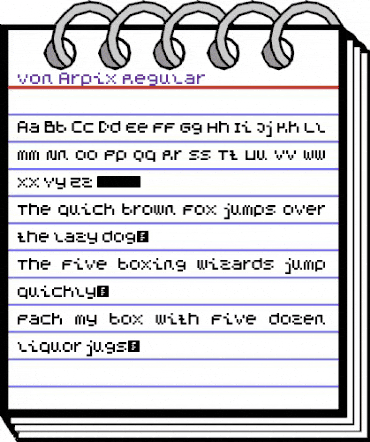 von Arpix Regular
Aa Bb Cc Dd Ee FF Gg Hh Ii Jj Kh Ll
mm Nn Oo Pp Qq Rr Ss Tt Uu Vv Ww
Xx Yy Zz
The quick brown fox jumps over
the lazy dog
The five boxing wizards jump
quickly
Pack my box with five dozen
liquor jugs